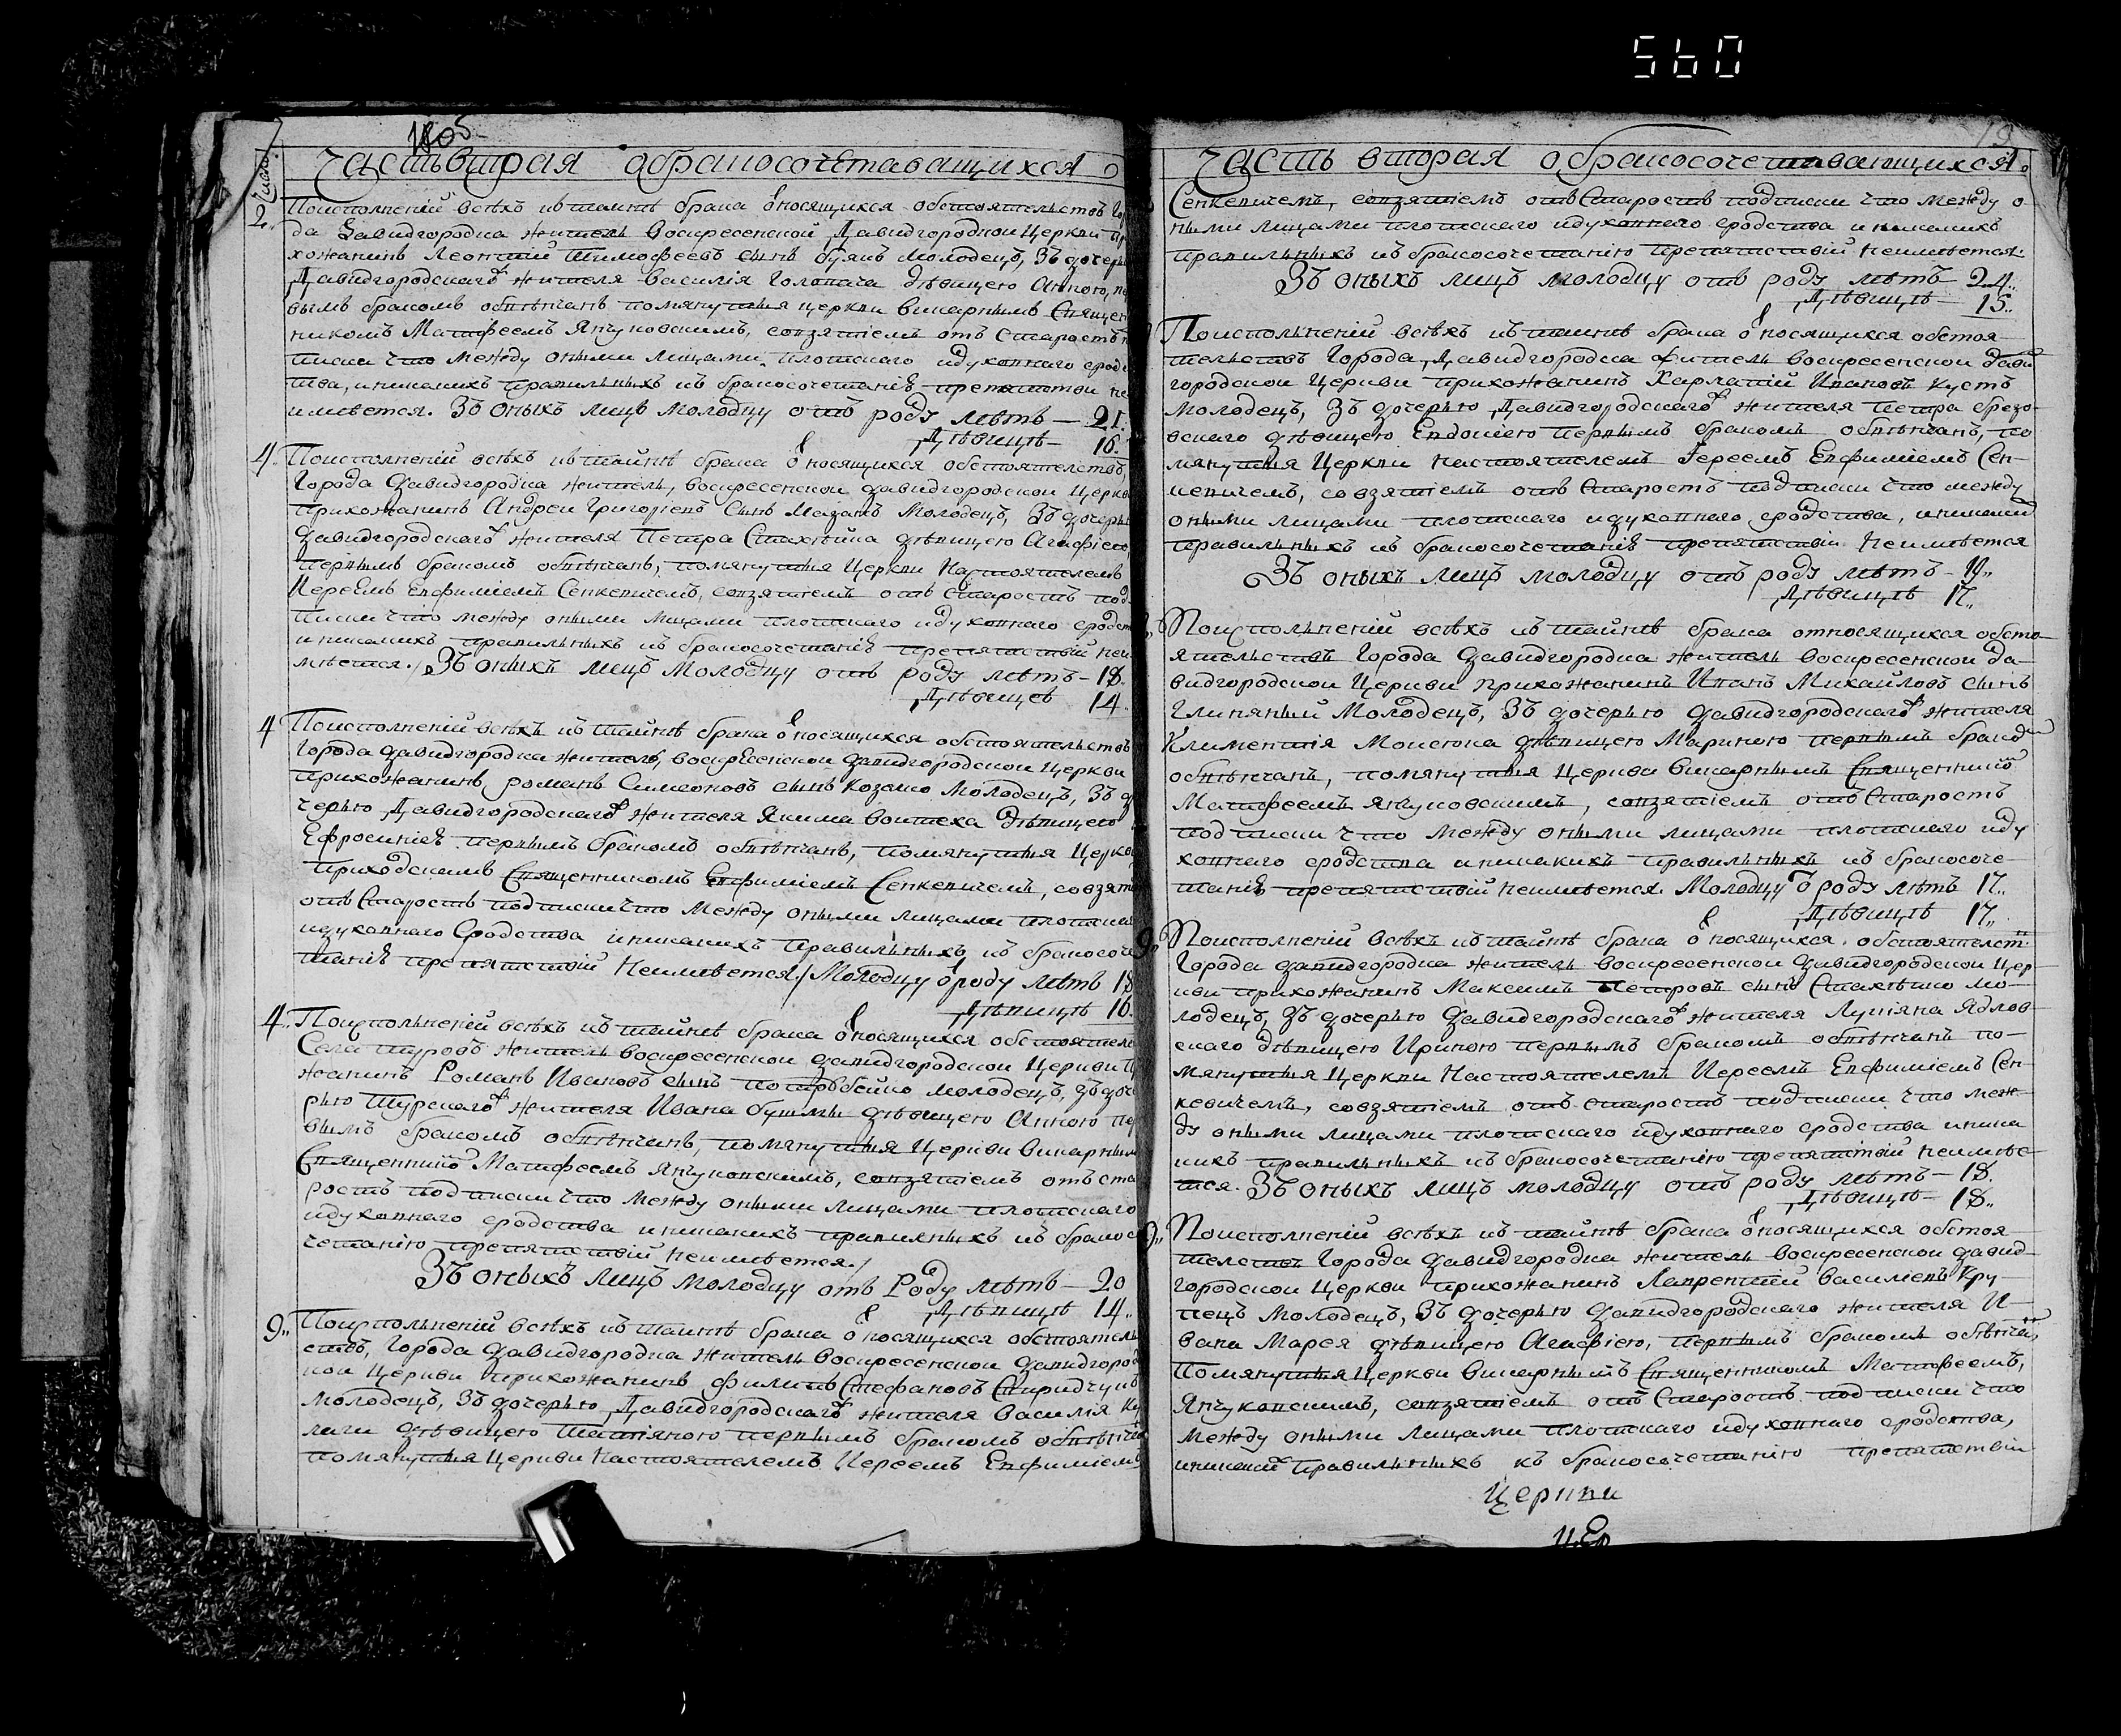 560
Часть вторая обракосочетавающихся
Числа
2. Поисполненій всѣхъ къ таинѣ брака относящихся обстоятельствъ Горо
да Давидгородка житель Воскресенской Давидгородкой Церкви
хожанинъ Леонтій Тимофеевъ сынъ Буякъ молодецъ, Зъ дочерью
Давидгородскаго жителя Василія Голопача дѣвицею Анною,
вымъ бракомъ обвѣнчанъ помянутыя церкви викарнымъ Священ
никомъ Матфеемъ Янчуковскимъ, совзятіемъ отъ Старостъ
писки что между оными лицами плотскаго идуховнаго сродс
тва, иникакихъ правильныхъ къ бракосочетанію препятствій не
имѣется. Зъ оныхъ лицъ молодцу отъ роду лѣтъ — 21.
Дѣвицѣ — 16.
4. Поисполненій всѣхъ къ таинѣ брака относящихся обстоятелствъ,
Города Давидгородка житель, воскресенской давидгородской Церкви
прихожанинъ Андрей Григоріевъ Сынъ Мазанъ Молодецъ, Зъ дочерью
Давидгородскаго жителя Петра Стахѣйка дѣвицею Агафіею
первымъ бракомъ обвѣнчанъ, помянутыя Церкви Настоятелемъ
Иереемъ Евфиміемъ Сенкевичемъ, совзятіемъ отъ Старостъ под
писки что между оными лицами плотскаго идуховнаго сродст
иникакихъ правильныхъ къ бракосочетанію препятствій неи
мѣется. / Зъ оныхъ лицъ Молодцу отъ роду лѣтъ — 18.
Дѣвицѣ 14.
4 Поисполненій всѣхъ къ таинѣ брака относящихся обстоятельствъ
Города давидгородка житель, воскресенской давидгородской Церкви
прихожанинъ романъ Симеоновъ сынъ Козако Молодецъ, Зъ до
черью Давидгородскаго жителя Якима Воитеха дѣвицею
Ефросиніею первымъ бракомъ обвѣнчанъ, помянутыя Церкви
приходскимъ Священникомъ Евфиміемъ Сенкевичемъ, совзяті
отъ Старостъ подписки что Между оными лицами плотскаг
идуховнаго Сродства иникакихъ правильныхъ къ бракосоче
танію препятствій Неимѣется / Молодцу отроду лѣтъ 18
Дѣвицѣ 16.
4. Поисполненій всѣхъ къ таинѣ брака относящихся обстоятел
Села Туровъ житель воскресенской давидгородской Церкви
жанинъ Романъ Ивановъ сынъ молодецъ, зъ доче
рью Турскаго жителя Ивана дѣвицею Анною пер
вымъ бракомъ обвѣнчанъ, помянутыя Церкви викарным
Священникомъ Матфеемъ Янчуковскимъ, совзятіемъ отъ ста
ростъ подписки что между оными лицами плотскаго
идуховнаго сродства иникакихъ правилныхъ къ бракосо
четанію препятствій неимѣется. /
Зъ оныхъ лицъ молодцу отъ Роду лѣтъ — 20
Дѣвицѣ 14..
9.. Поисполненій всѣхъ къ таинѣ брака относящихся обстоятель
ствъ, Города давидгородка житель воскресенской давидгород
кой Церкви прихожанинъ филипъ Стефановъ Спиридчукъ
молодецъ, Зъ дочерью Давидгородскаго жителя Василія
дѣвицею Татіяною первымъ бракомъ обвѣнча
помянутыя Церкви Настоятелемъ Иереемъ Евфиміемъ
Часть вторая обракосочетавающихся.
Сенкевичемъ, совзятіемъ отъ Старостъ подписки что между о
ными лицами плотскаго идуховнаго сродства иникакихъ
правильныхъ къ бракосочетанію препятствій неимѣется.
Зъ оныхъ лицъ молодцу отъ роду лѣтъ — 24..
Дѣвицѣ — 15..
Поисполненій всѣхъ къ таинѣ брака относящихся обстоя
тельствъ Города Давидгородка житель воскресенской дави
городской Церкви прихожанинъ Харлапій Ивановъ Кустъ
Молодецъ, Зъ дочерью Давидгородскаго жителя Петра брезо
вскаго дѣвицею Евдокіею первымъ бракомъ обвѣнчанъ, по
мянутыя Церкви Настоятелемъ Іереемъ Евфиміемъ Сен
кевичемъ, совзятіемъ отъ Старостъ подписки что между
оными лицами плотскаго идуховнаго сродства, иникакихъ
правильныхъ къ бракосочетанію препятствій Неимѣется
Зъ оныхъ лицъ молодцу отъ роду лѣтъ — 19..
Дѣвицѣ 17..
Поисполненій всѣхъ къ таинѣ брака относящихся обсто
ятельствъ Города Давидгородка житель воскресенской Да
видгородской Церкви прихожанинъ Иванъ Михайловъ сынъ
Глиняный Молодецъ, Зъ дочерью Давидгородскаго жителя
Климентія Моисюка дѣвицею Мариною первымъ бракомъ
обвѣнчанъ, помянутыя Церкви викарнымъ Священникомъ
Матфеемъ Янчуковскимъ, совзятіемъ отъ Старостъ
подписки что между оными лицами плотскаго иду
ховнаго сродства иникакихъ правильныхъ къ бракосоче
танію препятствій неимѣется. Молодцу отроду лѣтъ 17..
Дѣвицѣ 17..
9.. Поисполненій всѣхъ къ таинѣ брака относящихся обстоятелст
Города давидгородка житель воскресенской давидгородской Цер
кви прихожанинъ Максимъ Петровъ сынъ Стахѣйко мо
лодецъ, Зъ дочерью Давидгородскаго жителя Лукіяна Ядлов
скаго дѣвицею Ириною первымъ бракомъ обвѣнчанъ по
мянутыя Церкви Настоятелемъ Иереемъ Евфиміемъ Сен
кевичемъ, совзятіемъ отъ старостъ подписки что меж
ду оными лицами плотскаго идуховнаго сродства иника
кихъ правильныхъ къ бракосочетанію препятствій неимѣе
тся. Зъ оныхъ лицъ молодцу отъ роду лѣтъ — 18.
Дѣвицѣ — 18..
9.. Поисполненій всѣхъ къ таинѣ брака относящихся обстоя
телствъ Города Давидгородка житель воскресенской давид
городской Церкви прихожанинъ Лаврентій Василіевъ Кру
пецъ молодецъ, Зъ дочерью Давидгородскаго жителя И
вана Марея дѣвицею Агафіею, первымъ бракомъ обвѣнчанъ,
Помянутыя Церкви викарнымъ Священникомъ Матфеемъ,
Янчуковскимъ, совзятіемъ отъ Старостъ подписки что
между оными лицами плотскаго идуховнаго сродства,
иникакихъ правильныхъ къ бракосочетанію препятствій
Церкви